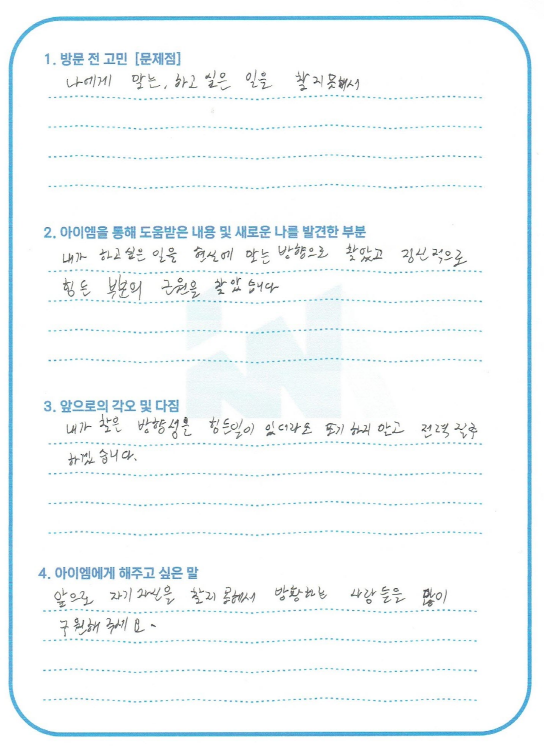 1. 방문 전 고민 [문제점]
나에게 맞는, 하고 싶은 일을 찾지못해서
2. 아이엠을 통해 도움받은 내용 및 새로운 나를 발견한 부분
내가 하고싶은 일을 현실에 맞는 방향으로 찾았고 정신적으로
힘든 부분의 근원을 찾았습니다
3. 앞으로의 각오 및 다짐
내가 찾은 방향성을 힘든일이 있더라도 포기 하지 안고 전력질주
하겠습니다.
4. 아이엠에게 해주고 싶은 말
앞으로 자기자신을 찾지 못해서 방황하는 사람들을 많이
구원해주세요~